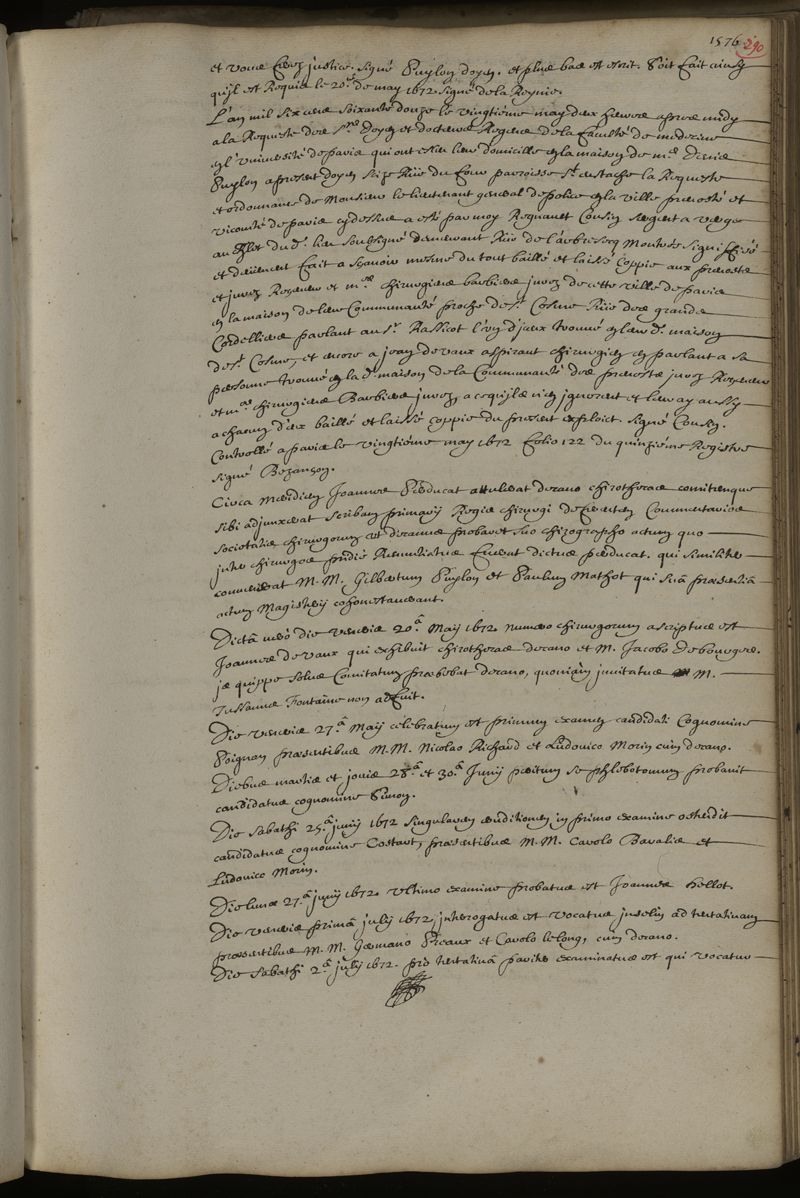 1576. 290
et vous ferez justice. signé Puylon doyen. et plus bas est escrit. Soit fait ainsy
quil est Requis le 20e. de may 1672. signé de la Reynie.
L'an mil six cens soixante douze le vingtiéme may deux heures apres midy
a la Requeste des Srs. Doyen et docteurs Regens de la faculté de medecine
en l'université de paris qui ont esleu leur domicille en la maison de me. Denis
Puylon a present doyen size Rüe du four parroisse St. eustache la Requeste
et ordonnance de Monsieur le lieutenant general de police en la ville prevosté et
vicomté de paris cy dessus a esté par moy Regnault Cousin sergent a verge
au Chlet dud. lieu soubsigné demeurant Rüe de l'arbresecq Monstré signiffié
et deüement fait a sçavoir mesme du tout baillé et laissé coppie aux prevosts
et jurez Royaux et mes. chirurgiens barbiers jurez de cette ville de paris
en la maison de leur Communauté proche de St. Cosme Rüe des grands
Cordelliers parlant au Sr. Rassicot l'un d'jceux trouvé en leurd. maison
de St. Cosme, et encore a jean devaux aspirant chirurgien en parlant a sa
personne trouvé en lad. maison de la Communauté des prevosts jurez Royaux
et mes. chirurgiens Barbiers jurez, a ce qu'jls n'en jgnorent et leur ay aussy
a chacun d'eux baillé et laissé coppie du present exploict. signé Cousin.
Controllé a paris le vingtiéme may 1672. folio 122 du quinziéme Registre
signé Bezançon.
Circa meridiem Joannes Preducat attulerat decano chirothecas comitemque
sibi adjunxerat scribam primarij Regis chirurgi defferentem Commentarios
societatis chirurgorum ut decanus probaret suo chirographo actum quo
jnter chirurgos pridie Renuntiatus fuerat dictus preducat. qui similiter
convenerat M. M. Gilbertum Puylon et Paulum Mathot qui suâ præsentiâ
actum Magisterij cohonestaverant.
Dictâ verò die veneris 20.â Maij 1672. numero chirurgorum ascriptus est
Joannes devaux qui exhibuit chirothecas decano et M. Jacobo de bourges.
js quippe solus Comitatum præbebat decano, quoniàm jnvitatus M.
Tussanus fontaine non adfuit.
Die veneris 27.â Maij celebratum est primum examen candidati Cognomine
Poignan præsentibus M. M. Nicolao Richard et Ludovico Morin cum decano.
Diebus martis et jovis 28.â et 30.â Junij peritum se phlebotomum probavit
candidatus cognomine Simon.
Die Sabathi 25.â junij 1672. singularem eruditionem in primo examine ostendit
candidatus cognomine Costart, præsentibus M. M. Carolo Baralis et
Ludovico Morin.
Die lunæ 27.â junij 1672. ultimo examine probatus est Joannes Hellot.
Die veneris primâ julij 1672. jnterogatus est vocatus juselin ad tentativam
præsentibus M. M. Germano Preaux et Carolo lelong, cum decano.
Die Sabathi 2.â julij 1672. pro tentativâ pariter examinatus est qui vocatur